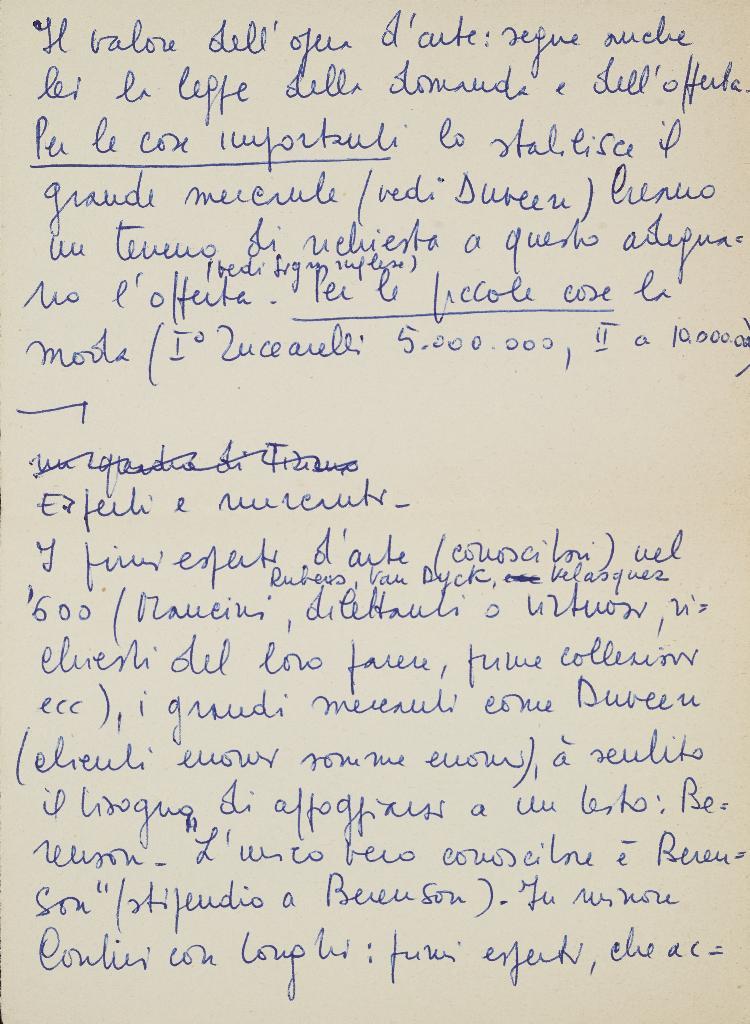 Il valore dell'opera d'arte: segue anche
lei la legge della domanda e dell'offerta.
Per le cose importanti lo stabilisce il
grande mercante (vedi Duveen) Creano
un terreno di richiesta a questo adegua=
(vedi Sign. inglese)
no l'offerta. Per le piccole cose la
moda (I° Zuccarelli 5.000.000, II a 10.000.000)
un quadro di Tiziano
Esperti e mercanti -
I primi esperti d'arte (conoscitori) nel
Rubens, Van Dyck, Velasquez
'600 (Mancini, dilettanti o virtuosi, ri=
chiesti del loro parere, prime collezioni
ecc), i grandi mercanti come Duveen
(clienti enormi somme enormi), à sentito
il bisogno di appoggiarsi a un testo: Be=
renson - "L'unico vero conoscitore è Beren=
son" (stipendio a Berenson). In minore
Contini con Longhi: primi esperti, che ac=